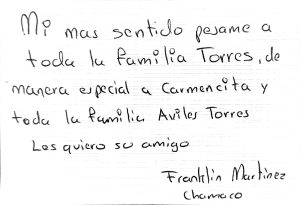 Mi mas sentido pesame a
toda la familia Torres, de
manera especial a Carmencita y
toda la familia Aviles Torres
Les quiero su amigo
Franklin Martinez
Chamaco